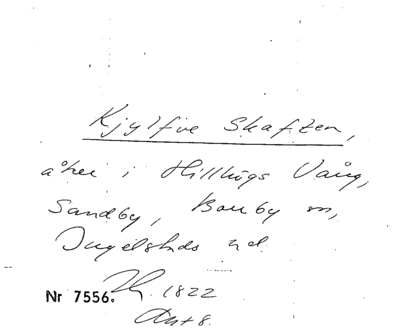 Kjylfve Skaften,
åker i Hillhögs Vång,
Sandby, Borrby sn,
Ingelstads hd.
1822
Nr 7556.
Akt 8.